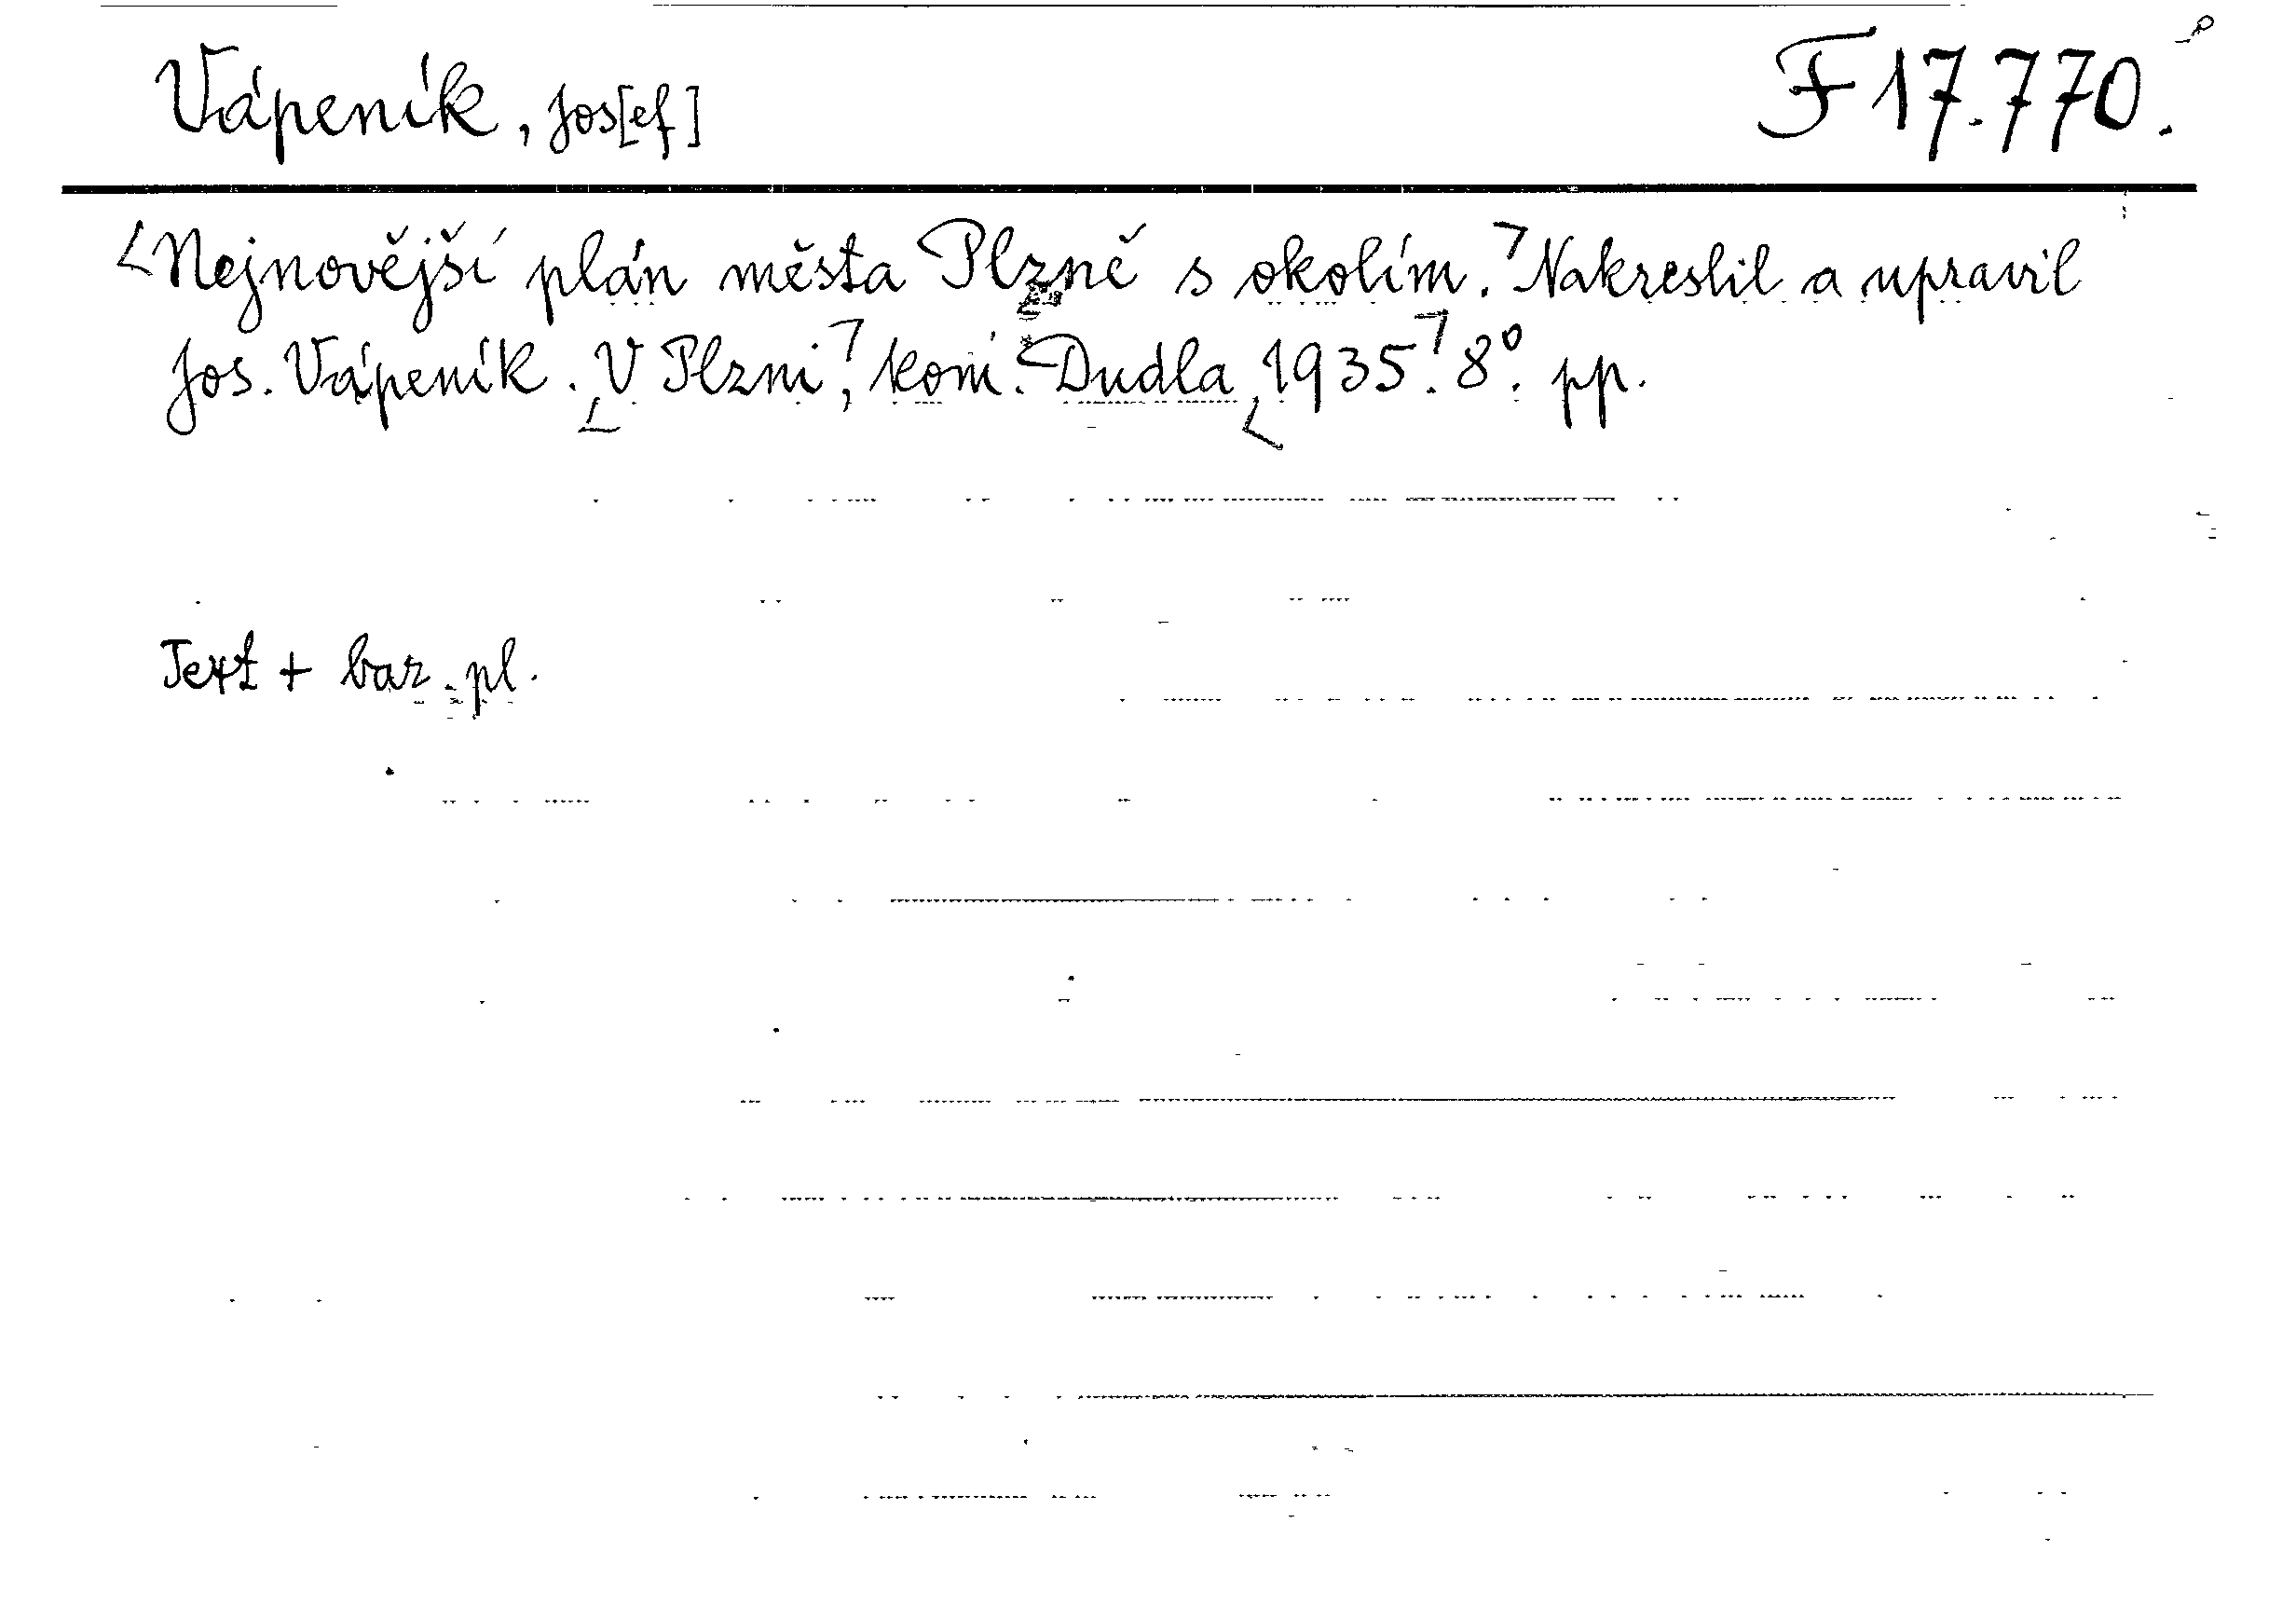 Vápeník, Jos[ef] F 17.770.
<Nejnovější plán města Plzně s okolím.> Nakreslil a upravil
Jos. Vápeník. <V Plzni>, kom. Dudla <1935>. 8°. pp.
Text + bar. pl.